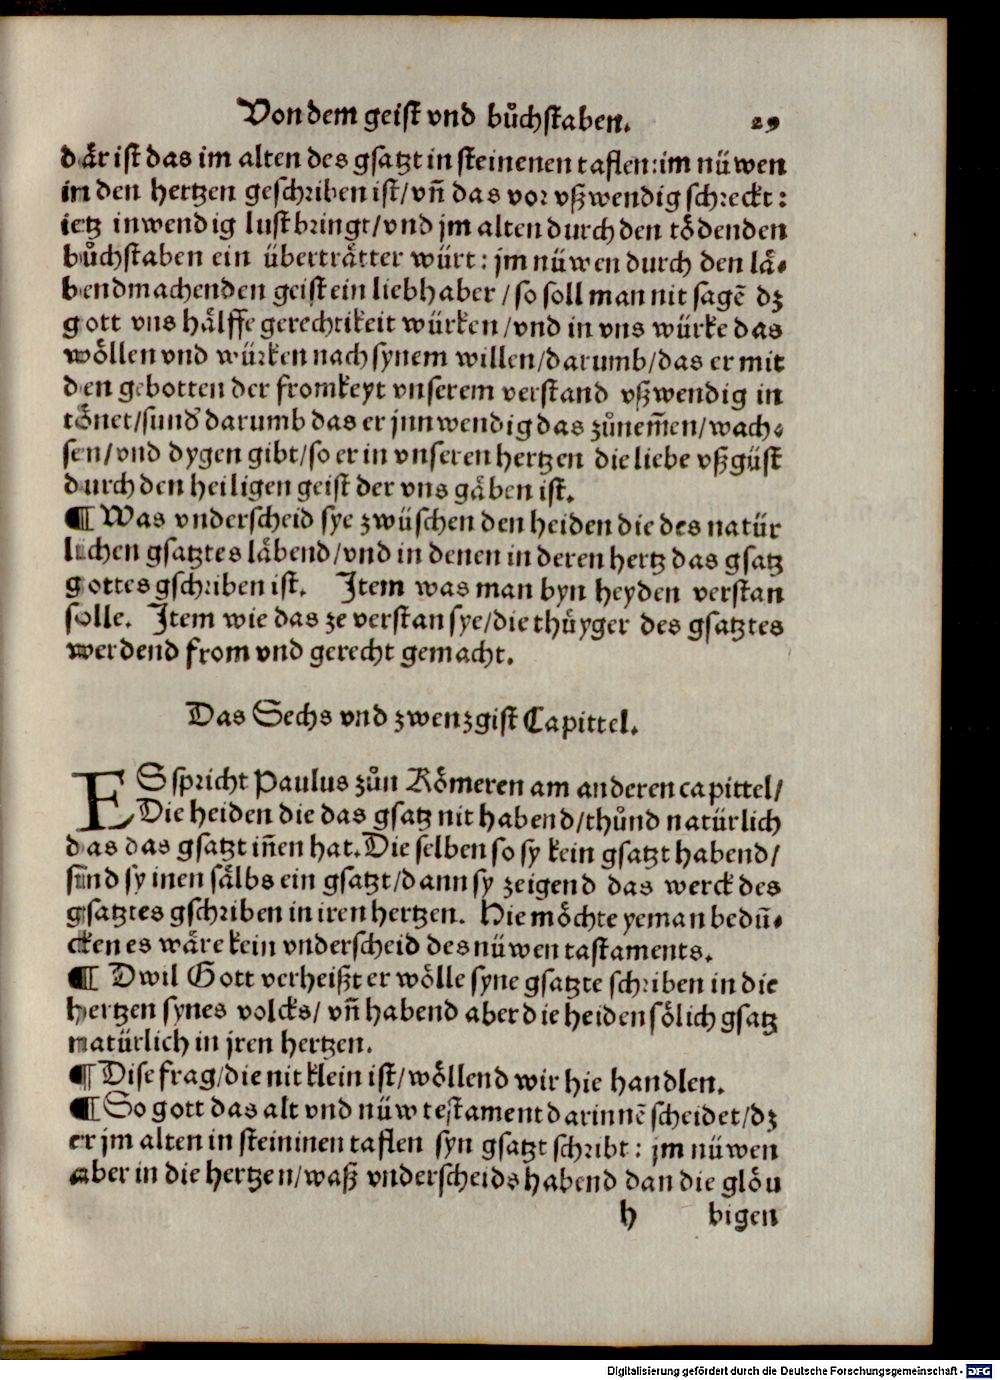 Von dem geist vnd bůchstaben. 29
där ist das im alten des gsatzt in steinenen taflen: im nüwen
in den hertzen geschriben ist/ vn̄ das vor vßwendig schreckt:
ietz inwendig lust bringt/ vnd jm alten durch den tödenden
bůchstaben ein überträtter würt: jm nüwen durch den lä-
bendmachenden geist ein liebhaber / so soll man nit sagē dz
gott vns hälffe gerechtikeit würken / vnd in vns würke das
wöllen vnd würken nach synem willen/ darumb/ das er mit
den gebotten der fromkeyt vnserem verstand vßwendig in
tönet/ sund' darumb das er jnnwendig das zůnem̄en/ wach-
sen/ vnd dygen gibt/ so er in vnseren hertzen die liebe vßgüst
durch den heiligen geist der vns gäben ist.
¶ Was vnderscheid sye zwüschen den heiden die des natür
lichen gsatztes läbend/ vnd in denen in deren hertz das gsatz
gottes gschriben ist. Item was man byn heyden verstan
solle. Item wie das ze verstan sye/ die thüyger des gsatztes
werdend from vnd gerecht gemacht.
Das Sechs vnd zwenzgist Capittel.
ES spricht Paulus zůn Römeren am anderen capittel/
Die heiden die das gsatz nit habend/ thůnd natürlich
das das gsatzt in̄en hat. Die selben so sy kein gsatzt habend/
sind sy inen sälbs ein gsatzt/ dann sy zeigend das werck des
gsatztes gschriben in iren hertzen. Hie möchte yeman bedū-
cken es wäre kein vnderscheid des nüwen tastaments.
¶ Dwil Gott verheißt er wölle syne gsatzte schriben in die
hertzen synes volcks/ vn̄ habend aber die heiden sölich gsatz
natürlich in jren hertzen.
¶ Dise frag/ die nit klein ist/ wöllend wir hie handlen.
¶ So gott das alt vnd nüw testament darinnē scheidet/ dz
er jm alten in steininen taflen syn gsatzt schribt: jm nüwen
aber in die hertzen/ waß vnderscheids habend dan die glöu
h bigen
Digitalisierung gefördert durch die Deutsche Forschungsgemeinschaft - DFG